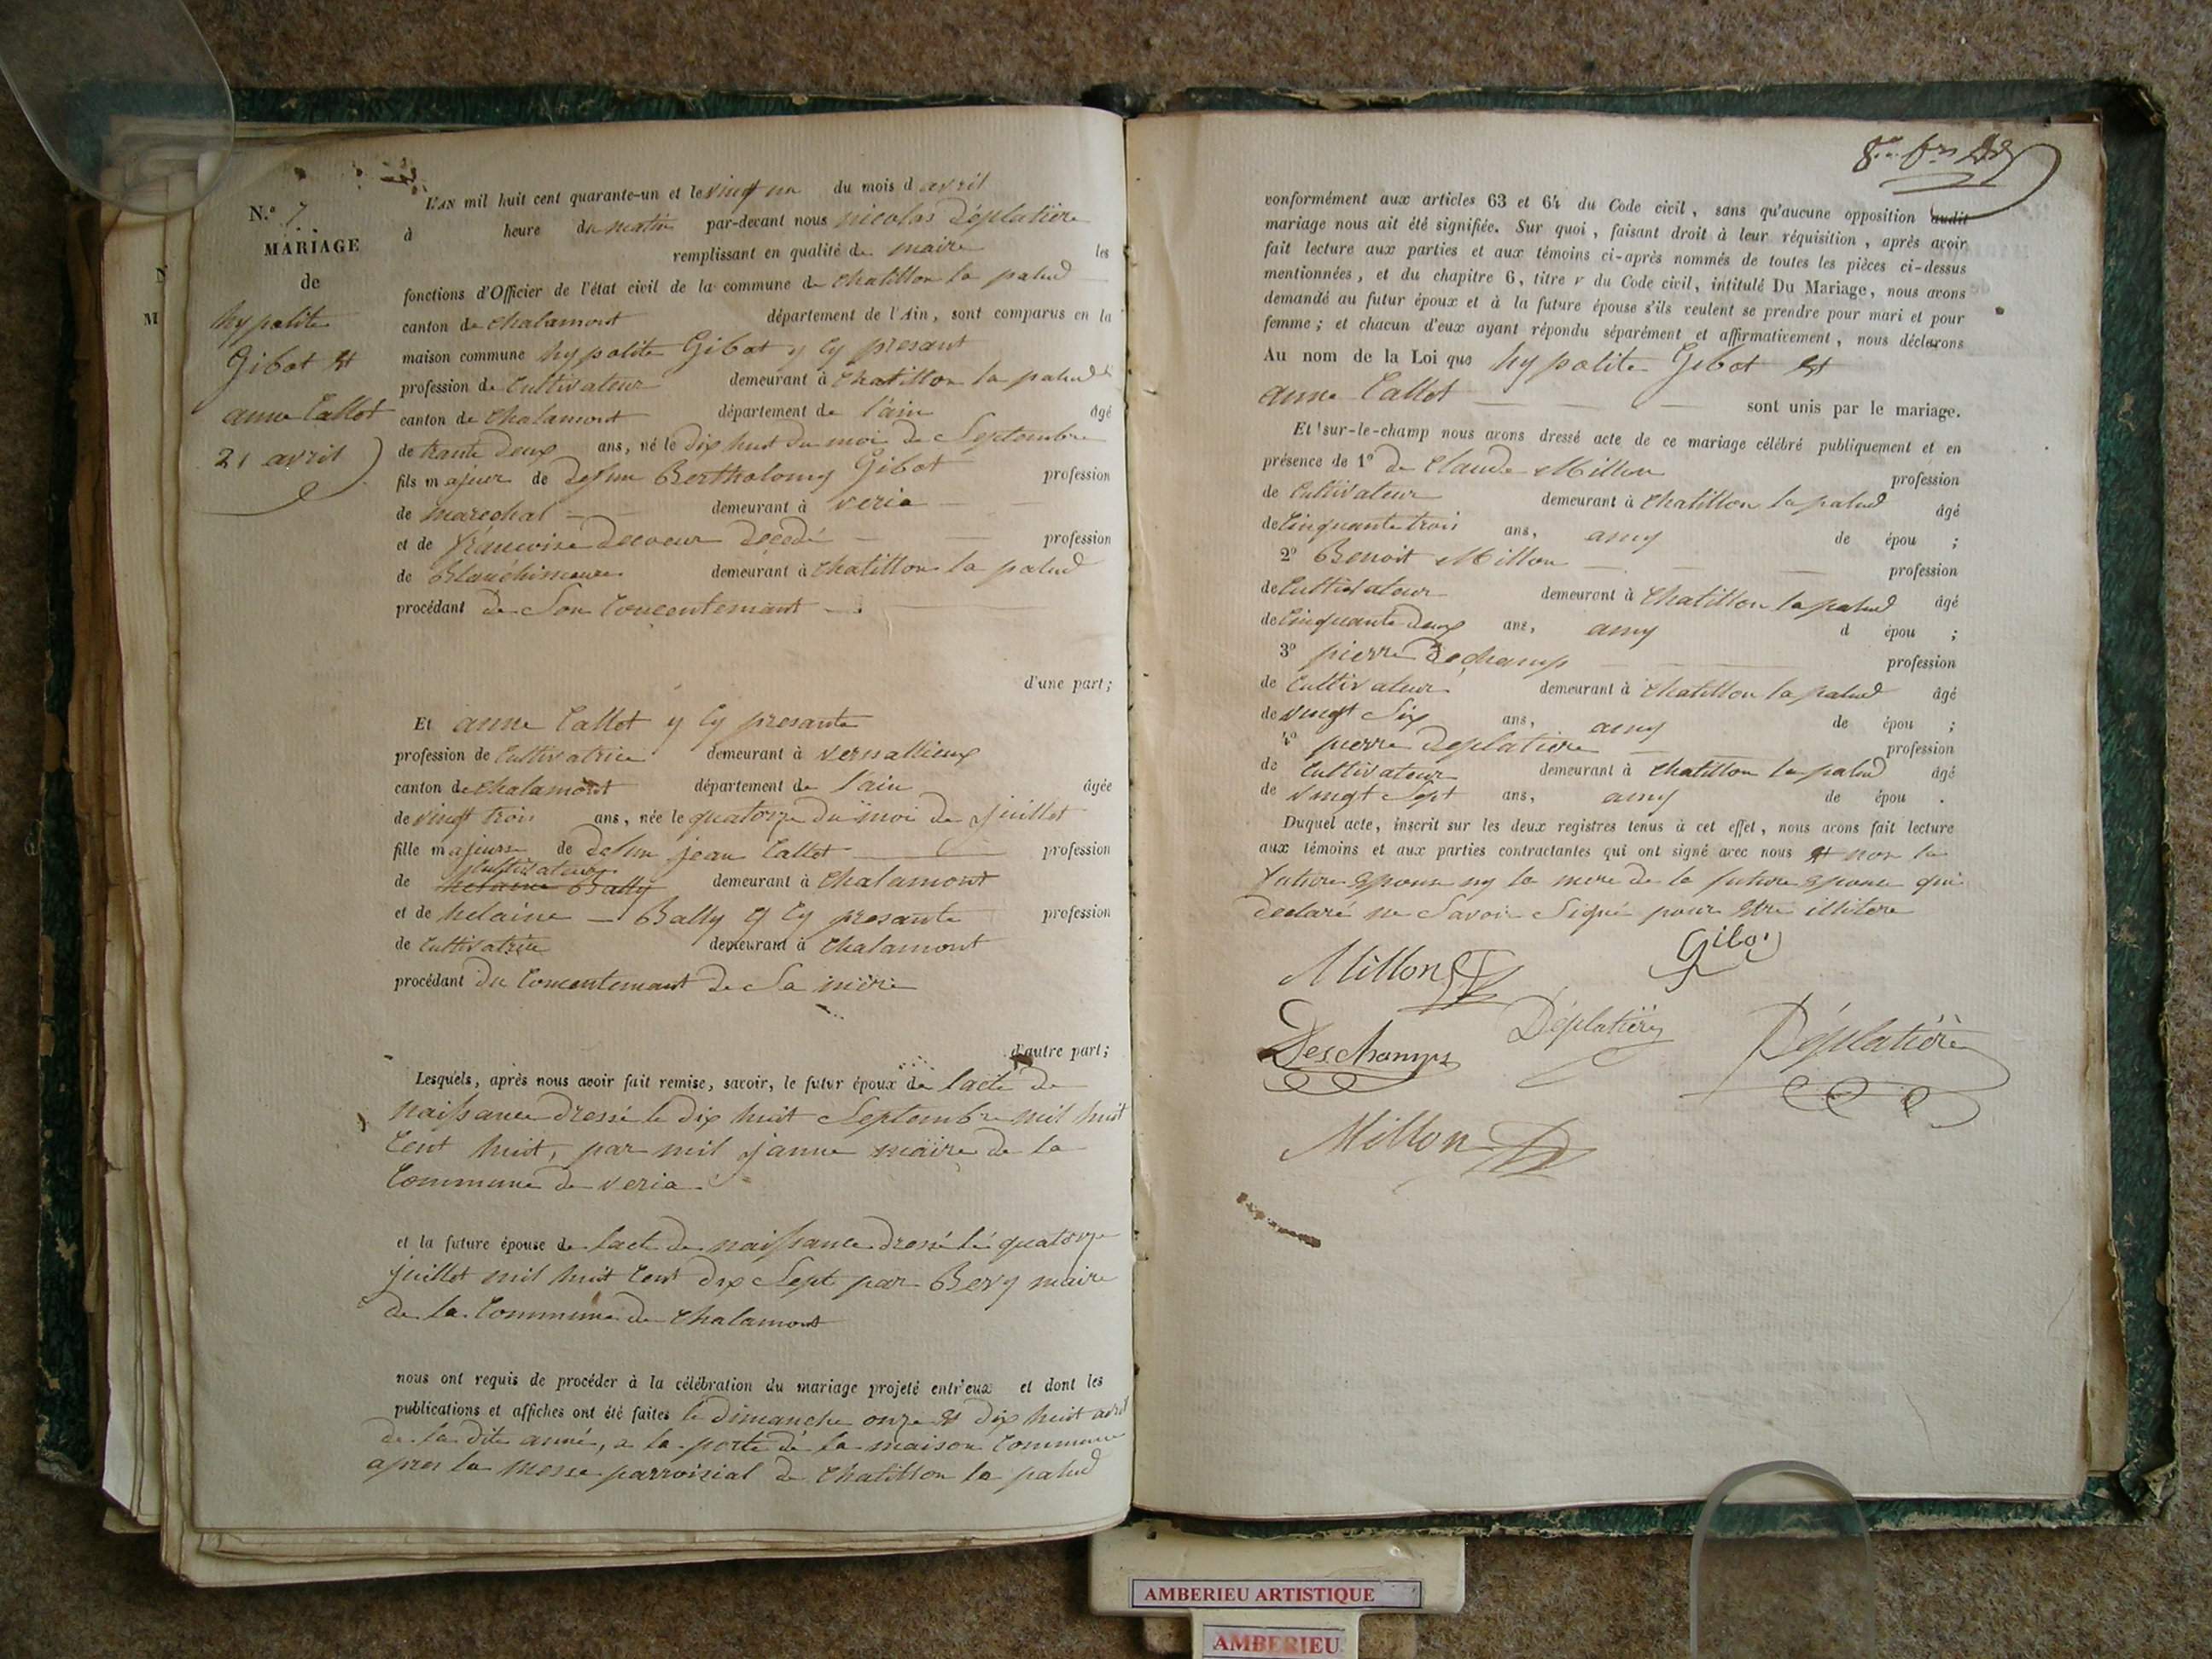 N.º 7
MARIAGE
de
hypolite
Gibot et
anne Callot
21 avril
N
M
L'AN mil huit cent quarante-un et le vingt un du mois d avril
à heure du matin par-devant nous nicolas Déplatière
remplissant en qualité de maire les
fonctions d'Officier de l'état civil de la commune de chatillon la palud
canton de chalamont département de l'Ain, sont comparus en la
maison commune hypolite Gibot y Cy presant
profession de Cultivateur demeurant à chatillon la palud
canton de chalamont département de l'ain âgé
de trante deux ans, né le dix huit du moi de Septembre
fils majeur de defun Bertholomy Gibot profession
de marechal demeurant à veria
et de francoise decoeur décédé profession
de Blanchisseuse demeurant à chatillon la palud
procédant de Son Concentemant
d'une part;
Et anne Callot y Cy presante
profession de Cultivatrice demeurant à versallieux
canton de chalamont département de l'ain âgée
de vingt trois ans, née le quatorze du moi de juillet
fille majeure de defun jean Callot profession
Cultivateur
de helaine Bally demeurant à chalamont
et de helaine Bally y Cy presante profession
de Cultivatrice demeurant à chalamont
procédant du Concentemant de Sa mère
d'autre part;
Lesquels, après nous avoir fait remise, savoir, le futur époux de lacte de
naissance dressé le dix huit Septembre mil huit
Cent huit, par mil janne maire de la
Commune de veria
et la future épouse de lacte de naissance dressé lé quatorze
juillet mil huit Cent dix Sept par Bery maire
de la Commune de chalamont
nous ont requis de procéder à la célébration du mariage projeté entr'eux et dont les
publications et affiches ont été faites le dimanche onze et dix huit avril
de la dite anné, a la porte dé la maison Commune
apres la messe parroisial de chatillon la palud
conformément aux articles 63 et 64 du Code civil, sans qu'aucune opposition audit
mariage nous ait été signifiée. Sur quoi, faisant droit à leur réquisition, après avoir
fait lecture aux parties et aux témoins ci-après nommés de toutes les pièces ci-dessus
mentionnées, et du chapitre 6, titre v du Code civil, intitulé Du Mariage, nous avons
demandé au futur époux et à la future épouse s'ils veulent se prendre pour mari et pour
femme; et chacun d'eux ayant répondu séparément et affirmativement, nous déclarons
Au nom de la Loi que hypolite Gibot et
anne Callot sont unis par le mariage.
Et sur-le-champ nous avons dressé acte de ce mariage célébré publiquement et en
présence de 1º de Claude Millon profession
de Cultivateur demeurant à chatillon la palud âgé
de Cinquante trois ans, amy de épou ;
2º Benoit Millon profession
de Cultivateur demeurant à chatillon la palud âgé
de Cinquante deux ans, amy d épou ;
3º pierre dechamp profession
de Cultivateur demeurant à chatillon la palud âgé
de vingt Six ans, amy de épou ;
4º pierre deplatiere profession
de Cultivateur demeurant à chatillon la palud âgé
de vingt Sept ans, amy de épou .
Duquel acte, inscrit sur les deux registres tenus à cet effet, nous avons fait lecture
aux témoins et aux parties contractantes qui ont signé avec nous et non la
future epouse ny la mere de la future epouse qui
declaré ne Savoir Signé pour etre illitere
Millon
Gibot
Deschamps
Déplatière
Déplatière
Millon
AMBERIEU ARTISTIQUE
AMBERIEU